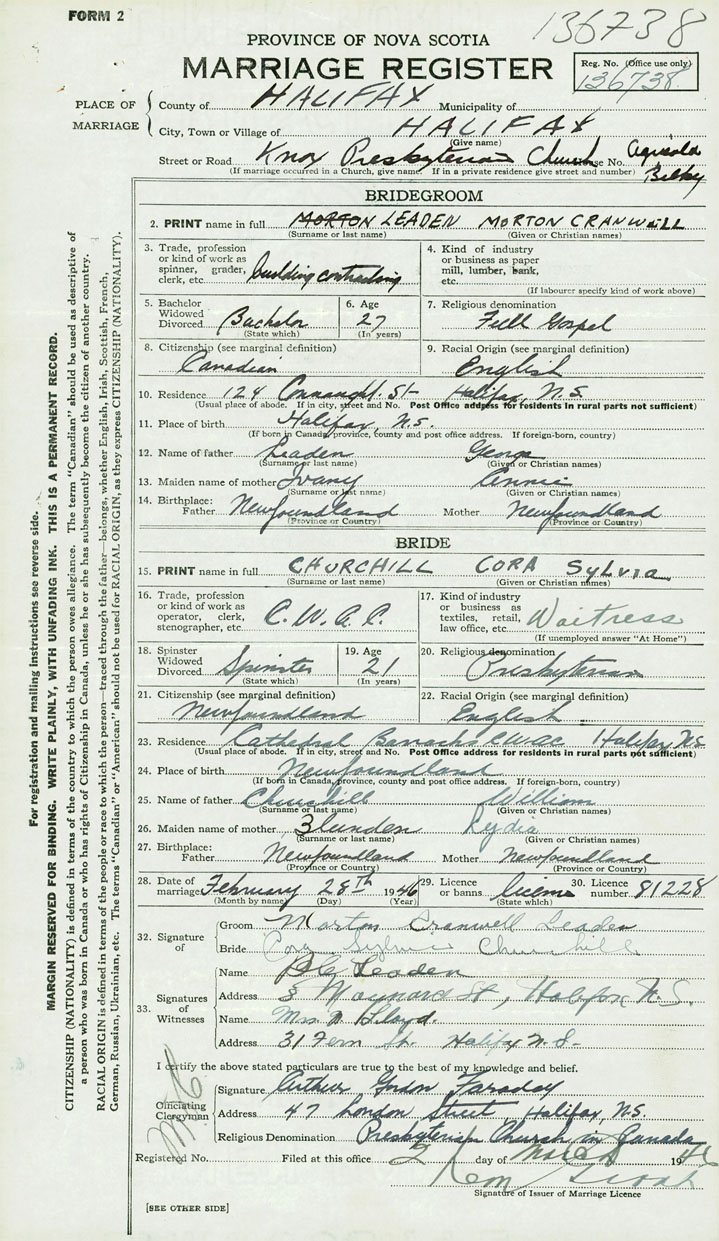 FORM 2
136738
PROVINCE OF NOVA SCOTIA
MARRIAGE REGISTER
Reg. No. (Office use only)
136738
PLACE OF MARRIAGE
County of HALIFAX Municipality of
City, Town or Village of HALIFAX
(Give name)
Street or Road Knox Presbyterian Church House No.
(If marriage occurred in a Church, give name. If in a private residence give street and number)
BRIDEGROOM
2. PRINT name in full MORTON LEADEN MORTON CRANWELL
(Surname or last name) (Given or Christian names)
3. Trade, profession or kind of work as spinner, grader, clerk, etc. building contracting
4. Kind of industry or business as paper mill, lumber, bank, etc.
(If labourer specify kind of work above)
5. Bachelor Widowed Divorced Bachelor (State which)
6. Age 27 (In years)
7. Religious denomination Full Gospel
8. Citizenship (see marginal definition) Canadian
9. Racial Origin (see marginal definition) English
10. Residence 124 St Halifax, N.S.
(Usual place of abode. If in city, street and No. Post Office address for residents in rural parts not sufficient)
11. Place of birth Halifax, N.S.
(If born in Canada, province, county and post office address. If foreign-born, country)
12. Name of father Leaden George
(Surname or last name) (Given or Christian names)
13. Maiden name of mother Ivany Annie
(Surname or last name) (Given or Christian names)
14. Birthplace: Father Newfoundland Mother Newfoundland
(Province or Country) (Province or Country)
BRIDE
15. PRINT name in full CHURCHILL CORA SYLVIA
(Surname or last name) (Given or Christian names)
16. Trade, profession or kind of work as operator, clerk, stenographer, etc. C.W.A.C.
17. Kind of industry or business as textiles, retail, law office, etc. Waitress
(If unemployed answer "At Home")
18. Spinster Widowed Divorced Spinster (State which)
19. Age 21 (In years)
20. Religious denomination Presbyterian
21. Citizenship (see marginal definition) Newfoundland
22. Racial Origin (see marginal definition) English
23. Residence Cathedral Barracks CWAC Halifax NS
(Usual place of abode. If in city, street and No. Post Office address for residents in rural parts not sufficient)
24. Place of birth Newfoundland
(If born in Canada, province, county and post office address. If foreign-born, country)
25. Name of father Churchill William
(Surname or last name) (Given or Christian names)
26. Maiden name of mother Blunden Lydia
(Surname or last name) (Given or Christian names)
27. Birthplace: Father Newfoundland Mother Newfoundland
(Province or Country) (Province or Country)
28. Date of marriage February 28th 1946
(Month by name) (Day) (Year)
29. Licence or banns license (State which)
30. Licence number 81228
32. Signature of
Groom Morton Cranwell Leaden
Bride Cora Sylvia Churchill
33. Signatures of Witnesses
Name Leaden
Address Maynard St, Halifax N.S.
Name Mrs Lloyd.
Address 31 Fern St. Halifax N.S.
I certify the above stated particulars are true to the best of my knowledge and belief.
Officiating Clergyman
Signature Arthur Gordon Faraday
Address 47 London Street, Halifax, N.S.
Religious Denomination Presbyterian Church in Canada
Registered No. Filed at this office 2 day of March 1946
Signature of Issuer of Marriage Licence
[SEE OTHER SIDE]
For registration and mailing instructions see reverse side.
MARGIN RESERVED FOR BINDING. WRITE PLAINLY, WITH UNFADING INK. THIS IS A PERMANENT RECORD.
CITIZENSHIP (NATIONALITY) is defined in terms of the country to which the person owes allegiance. The term "Canadian" should be used as descriptive of
a person who was born in Canada or who has rights of Citizenship in Canada, unless he or she has subsequently become the citizen of another country.
RACIAL ORIGIN is defined in terms of the people or race to which the person—traced through the father—belongs, whether English, Irish, Scottish, French,
German, Russian, Ukrainian, etc. The terms "Canadian" or "American" should not be used for RACIAL ORIGIN, as they express CITIZENSHIP (NATIONALITY).